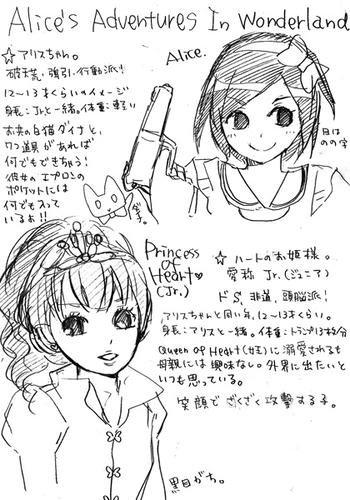 Alice's Adventures In Wonderland
☆アリスちゃん。
破天荒、強引、行動派!
12〜13才くらいのイメージ
身長:Jr.と一緒。体重:軽い
お供の白猫ダイナと、
7つ道具があれば
何でもできちゃう!
彼女のエプロンの
ポケットには
何でも入って
いるぉ!!
Alice.
目は
のの字
Princess
of
Heart♡
(Jr.)
☆ハートのお姫様。
愛称 Jr.(ジュニア)
ドS、非道、頭脳派!
アリスちゃんと同い年、12〜13才くらい。
身長:アリスと一緒。体重:トランプ13枚分
Queen of Heart(女王)に溺愛されるも
母親には興味ない。外界に出たいと
いつも思っている。
笑顔でざくざく攻撃する子。
黒目がち。